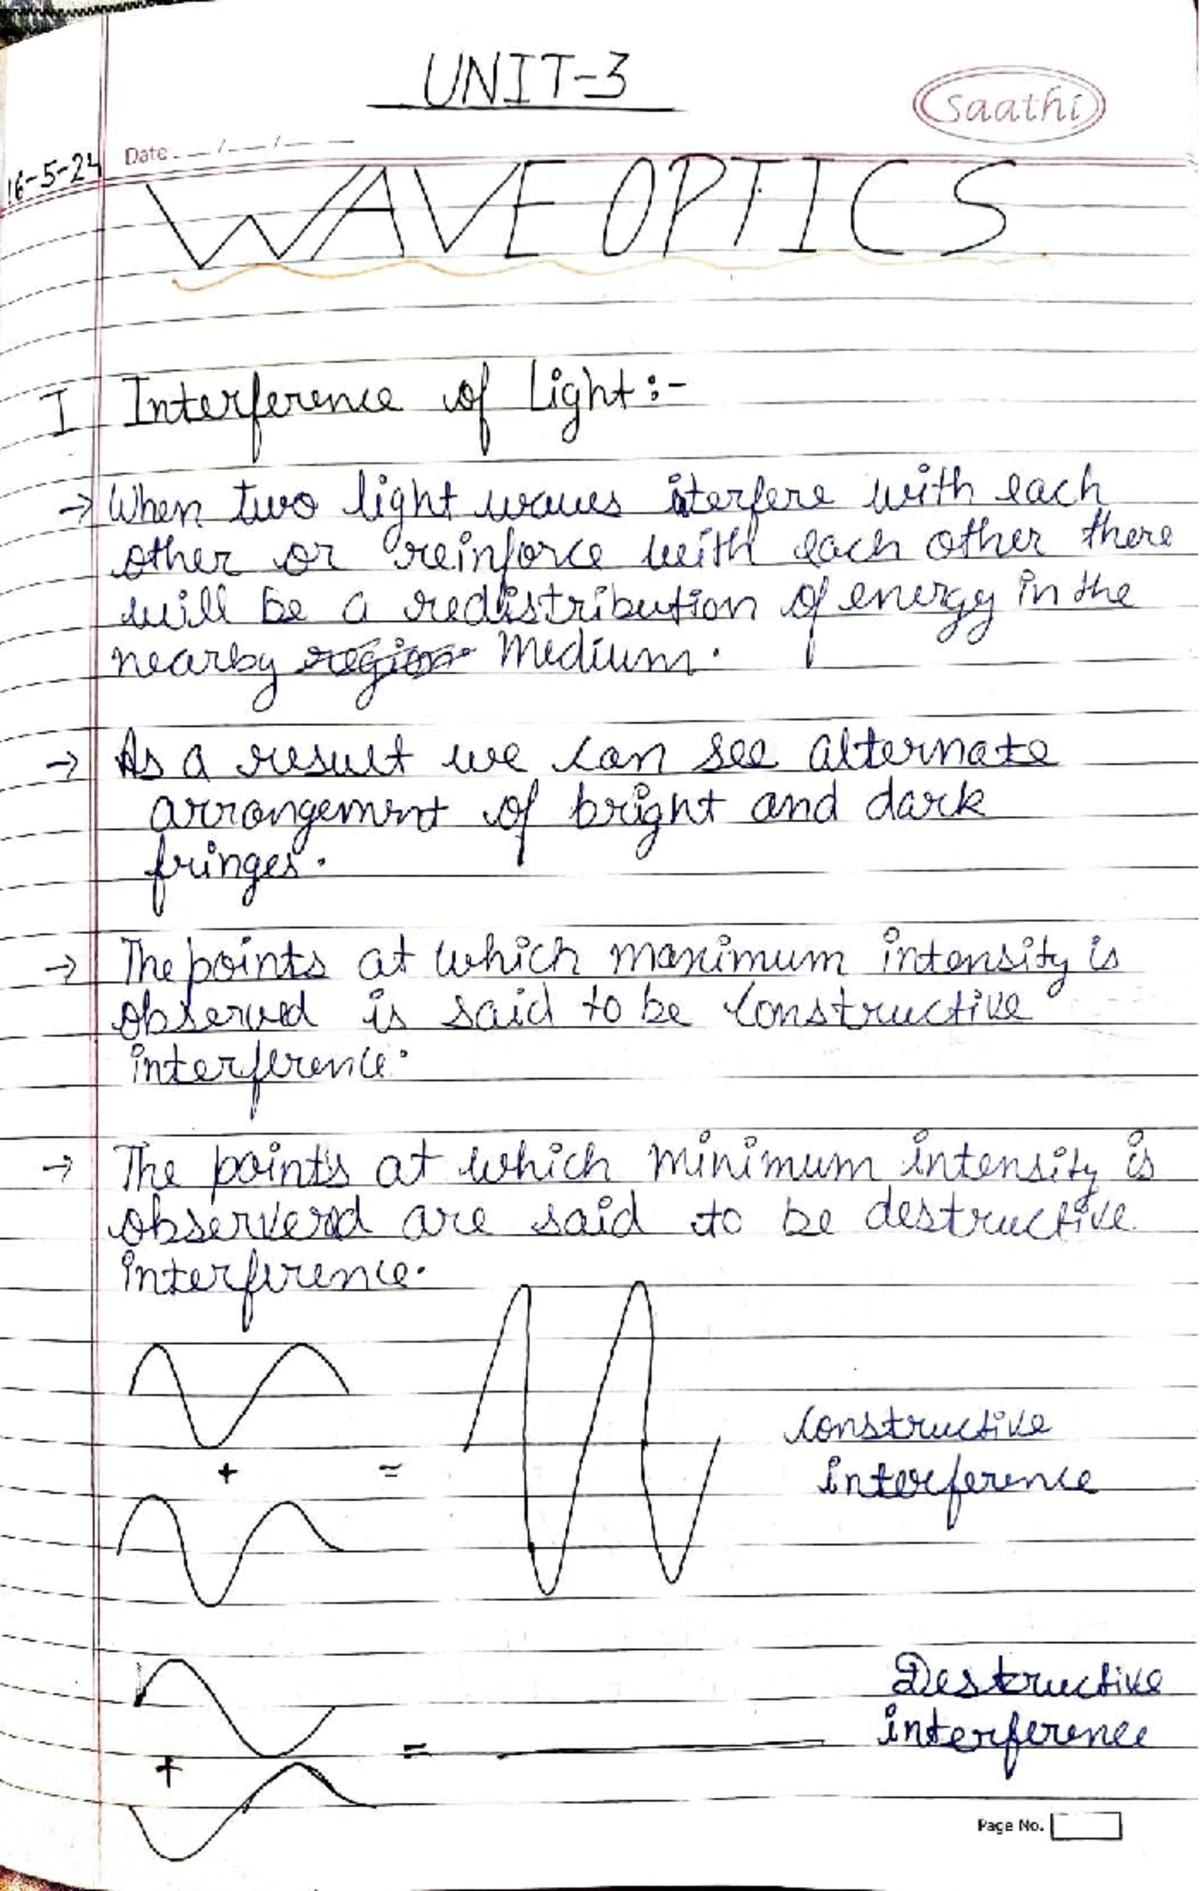 UNIT-3
Saathi
Date __/__/__
16-5-24
WAVE OPTICS
I Interference of Light:-
→ When two light waves iterfere with each
other or reinforce with each other there
will be a redistribution of energy in the
nearby region Medium.
→ As a result we can see alternate
arrangement of bright and dark
fringes.
→ The points at which maximum intensity is
observed is said to be constructive
interference.
→ The points at which minimum intensity is
observered are said to be destructive
interference.
+ =
Constructive
interference
+ =
Destructive
interference
Page No.